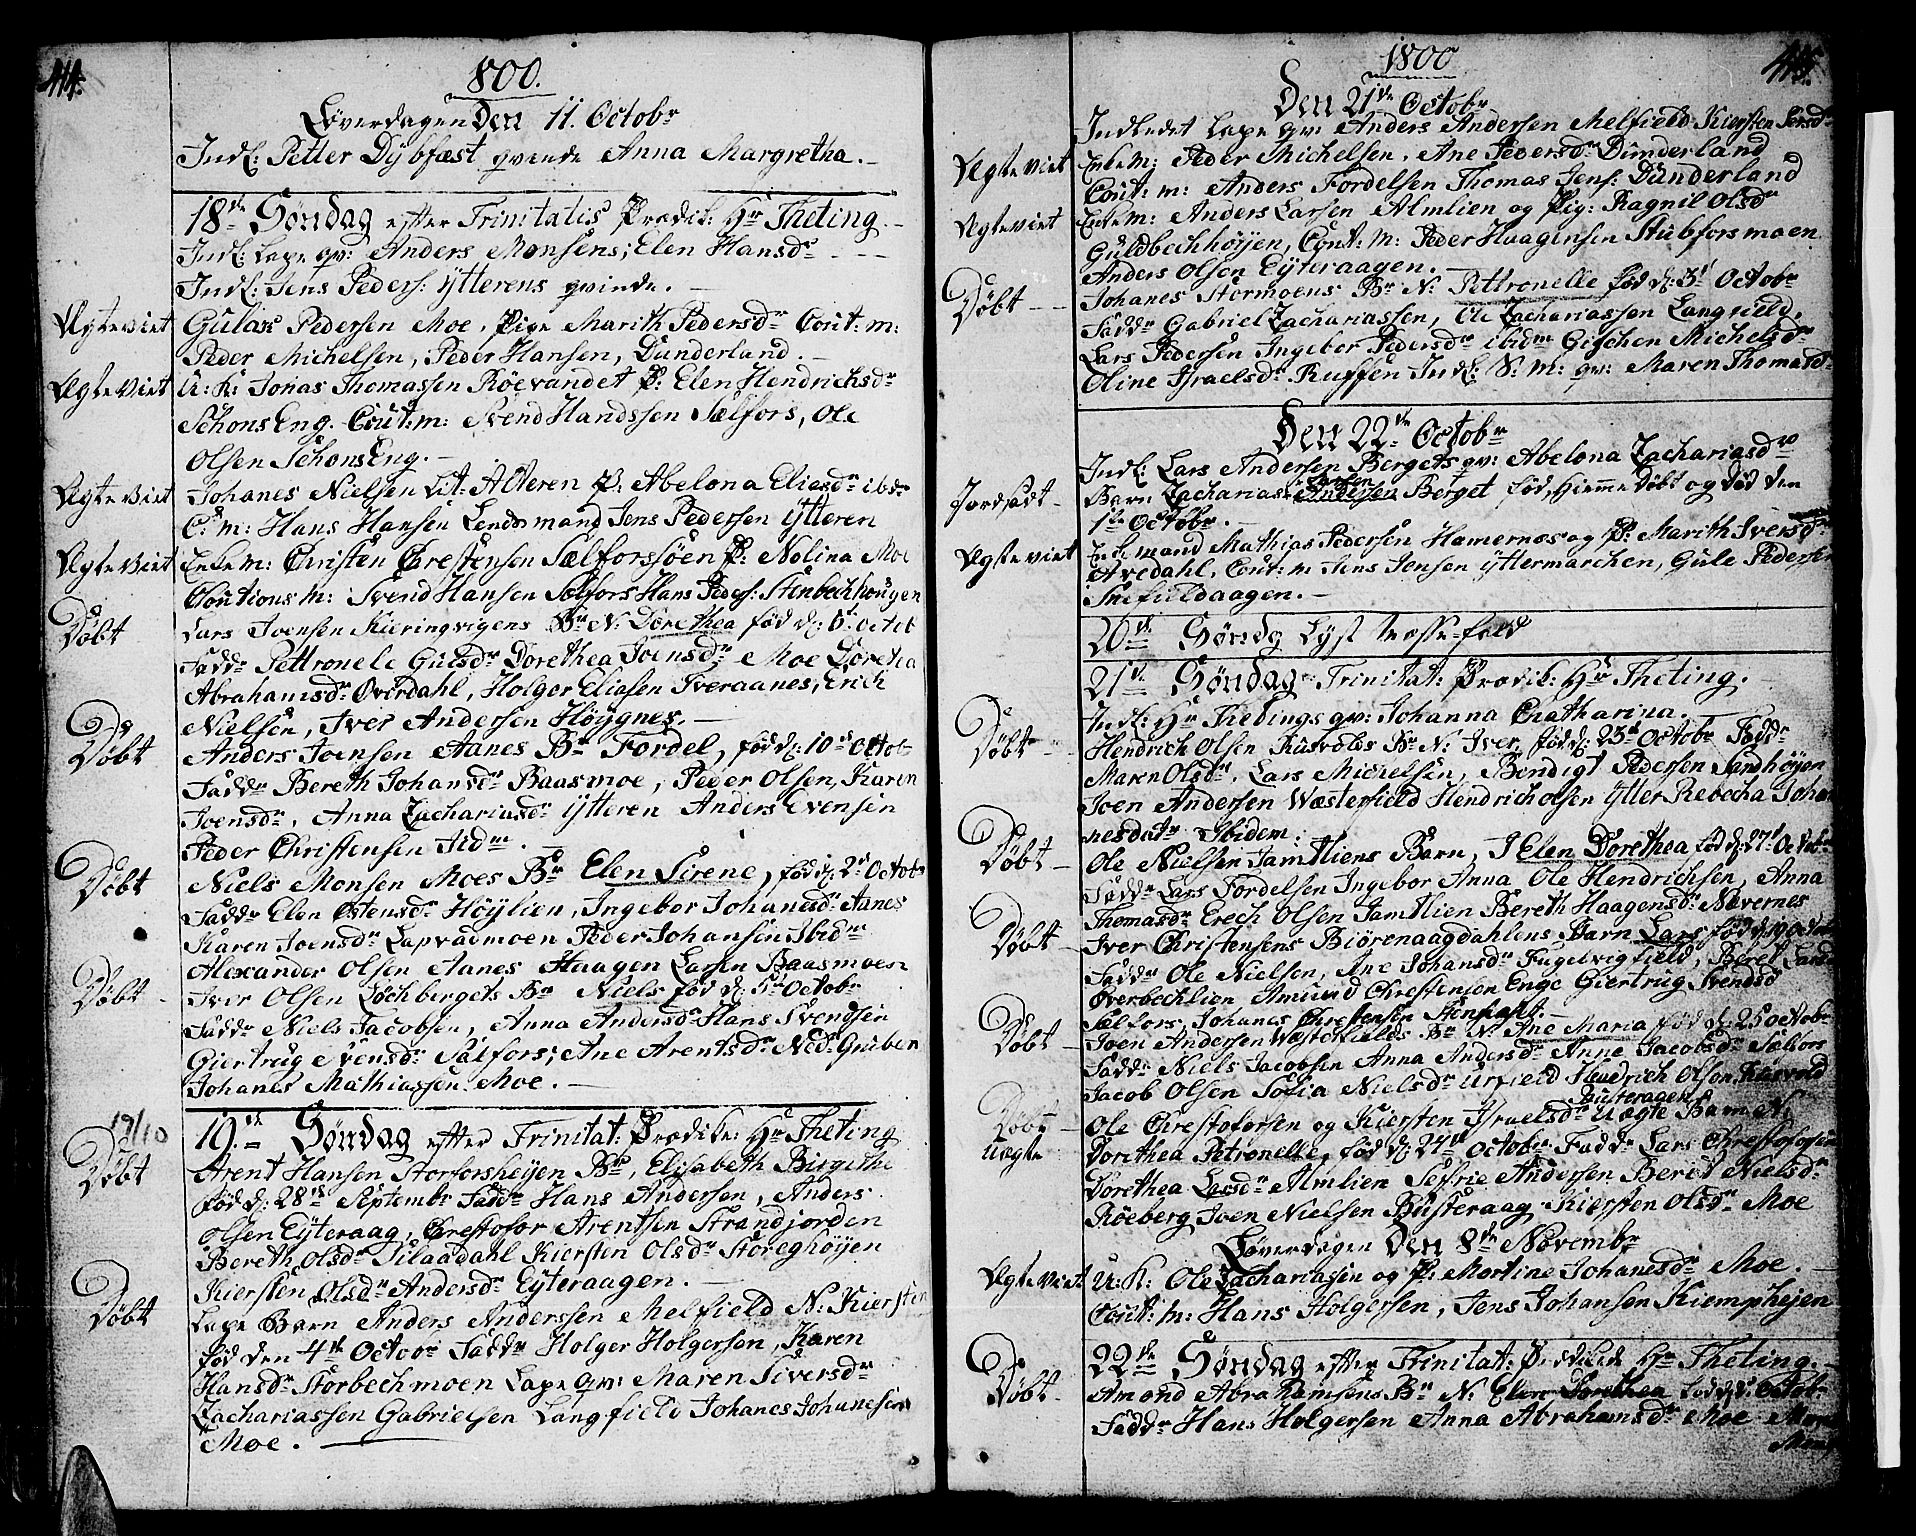 414.
1800.
Løverdagen Den 11. Octobr
Indl: Petter Dybfæst qvinde Anna Margretha.
18de Søndag effter Trinitatis Prædik: Hr Theting.
Indl: Lape qv: Anders Monsens; Elen Hansdr
Indl: Jens Peders: Ytterens qvinde.
Ægteviet Gulax Pedersen Moe, Pige Marith Pedersdr Cout: m:
Peder Michelsen, Peder Hansen, Dunderland.
Ægteviet U: K: Jonas Thomassen Røevandet P: Elen Hendrichsdr
SchonsEng. Cout: m: Svend Handssen Sælfors, Ole
Olsen SchonsEng.
Ægteviet Johanes Nielsen Lit: Alteren P: Abelona Eliesdr ibdm
C: m: Hans Hansen Lendsmand Jens Pedersen Ytteren
Ægteviet Enkem: Christen Chrestensen Sælforssöen P: Nolina Moe
Coutions m: Svend Hansen Sælfors Hans Peders: Stenbechhougen
Døbt Lars Joensen Kieringvigens Bn N: Dorethea fød d: 6t Octob
Fadde Pettronele Gulsdr Dorethea Joensdr Moe Doretea
Abrahamsdr Overdahl, Holger Eliasen Tveraanes, Erich
Nielsen, Iver Andersen Høygnes.
Døbt Anders Joensen Aanes Bn Fordel, fød d: 10de Octobr
Fadde Bereth Johansdr Baasmoe, Peder Olsen, Karen
Joensdr, Anna Zachariasdr Ytteren Anders Evensen
Peder Christensen Ibdm.
Døbt Niels Monsen Moes Bn Elen Sirene, fød d: 2de Octobr
Fadde Elen Ostensdr Høylien, Ingebor Johanesdr Aanes
Karen Joensdr Lapvadmoen Peder Johansen Ibidm
Alexander Olsen Aanes Haagen Larsen Baasmoen
Døbt Iver Olsen Løchbergets Bn Niels fød d: 5te Octobr
Fadde Niels Jacobsen, Anna Andersdr Hans Svendsen
Giertrug Svensdr Sælfors; Ane Arentsdr Ned: Gruben
Johanes Mathiassen Moe.
19/10 19de Søndag effter Trinitat: Prædike: Hr Theting
Døbt Arent Hansen Storforsheyen Bn, Elisabeth Birgithe
fød d: 28de Septembr Fadde Hans Andersen, Anders
Olsen Eyteraag, Chrestofor Arentsen Strandjorden
Bereth Olsdr Silaadahl Kiersten Olsdr Storeghøyen
Kiersten Olsdr Andersdr Eyteraagen.
Døbt Lape Barn Anders Anderssen Melfield N: Kiersten
fød den 4de Octobr Fadde Holger Holgersen, Karen
Hansdr Storbechmoen Lape qv: Maren Siversdr
Zachariassen Gabrielsen Langfield Johanes Johanesen
Moe.
415.
1800
Den 21de Octobr
Indledet Lape qv: Anders Andersen Melfield Kiersten Iversdr
Ægteviet Enkem: Peder Michelsen, Ane Pedersdr Dunderland
Cout: m: Anders Fordelsen Thomas Jens: Dunderland
Ægteviet Enkem: Anders Larsen Almlien og Pig: Ragnil Olsdr
Guldbechhøyen, Cont: m: Peder Haagensen Stubforsmoen
Anders Olsen Eyteraagen.
Døbt Johanes Stormoens Bn N: Pettronelle fød d: 3de Octobr
Fadde Gabriel Zachariassen, Ole Zachariassen Langfield,
Lars Pedersen Ingebor Pedersdr ibidm Gischen Michelsdr
Oline Israelsdr Ruffen Indl: S: m: qv: Maren Thomasdr
Den 22de Octobr
Indl: Lars Andersen Bergets qv: Abelona Zachariasdr
Jordfæst Barn Zacharias Larsen Andersen Berget fød, Hiemme døbt og død den
1ste Octobr.
Ægteviet Enkemand Mathias Pedersen Hamernæs og P: Marith Iversdr
Avedahl, Cont: m Jens Jensen Yttermarchen, Gule Pedersen
Snefieldaagen.
20de Søndg Lyst Messe-fald
21de Søndag Trinitat: Prædik: Hr Theting.
Indl: Hr Thetings qv: Johanna Chatharina.
Døbt Hendrich Olsen Kusvolds Bn N: Iver, fød d: 23de Octobr Fadde
Maren Olsdr, Lars Michelsen, Bendigt Pedersen Sandhøyen
Joen Andersen Wæsterfield Hendrich Olsen Ytter Rebecha Johan
nesdatr Ibidem:
Døbt Ole Nielsen Jamtliens Barn, Elen Dorethea fød d: 27de Octobr
Fadde Lars Fordelsen Ingebor Anna Ole Hendrichsen, Anna
Thomasdr Erech Olsen Jamtlien Bereth Haagensdr Nævernes
Døbt Iver Christensens Biørenaagdahlens Barn Lars fød d: 19 Octobr
Fadde Ole Nielsen, Ane Johansdr Fugelvigfield, Beret Larsdr
Overbechlien Amund Chrestensen Enge Giertrug Svendsd
Sælfors, Johanes Chrestensen Stenhaug.
Døbt Joen Andersen Wæsterfields Bn N: Ane Maria fød d: 25 Octobr
Fadde Niels Jacobsen Anna Andersdr Anne Jacobsdr Sælfors
Jacob Olsen Sofia Nielsdr Urfield Hendrich Olsen, Kusvold
Døbt Uægte Ole Chrestofersen og Kiersten Israelsdr Busteragen Uægte Barn N:
Dorethea Petronelle, fød d: 24de Octobr Fadde Lars Chrestofersen
Dorethea Larsdr Almlien Seffrie Andersen Beret Nielsdr
Røeberg Joen Nielsen Busteraag Kiersten Olsdr Moe
Løverdagen Den 8de Novembr
Ægteviet U: K: Ole Zachariassen og P: Martine Johanesdr Moe.
Cout: m: Hans Holgersen, Jens Johansen Kiemphejen
22de Søndag effter Trinitat: Prædikede Hr Theting.
Døbt Amond Abrahamsens Bn N: Elen Dorethea fød d: Octobr
Fadde Hans Holgersen Anna Abrahamsdr Moe